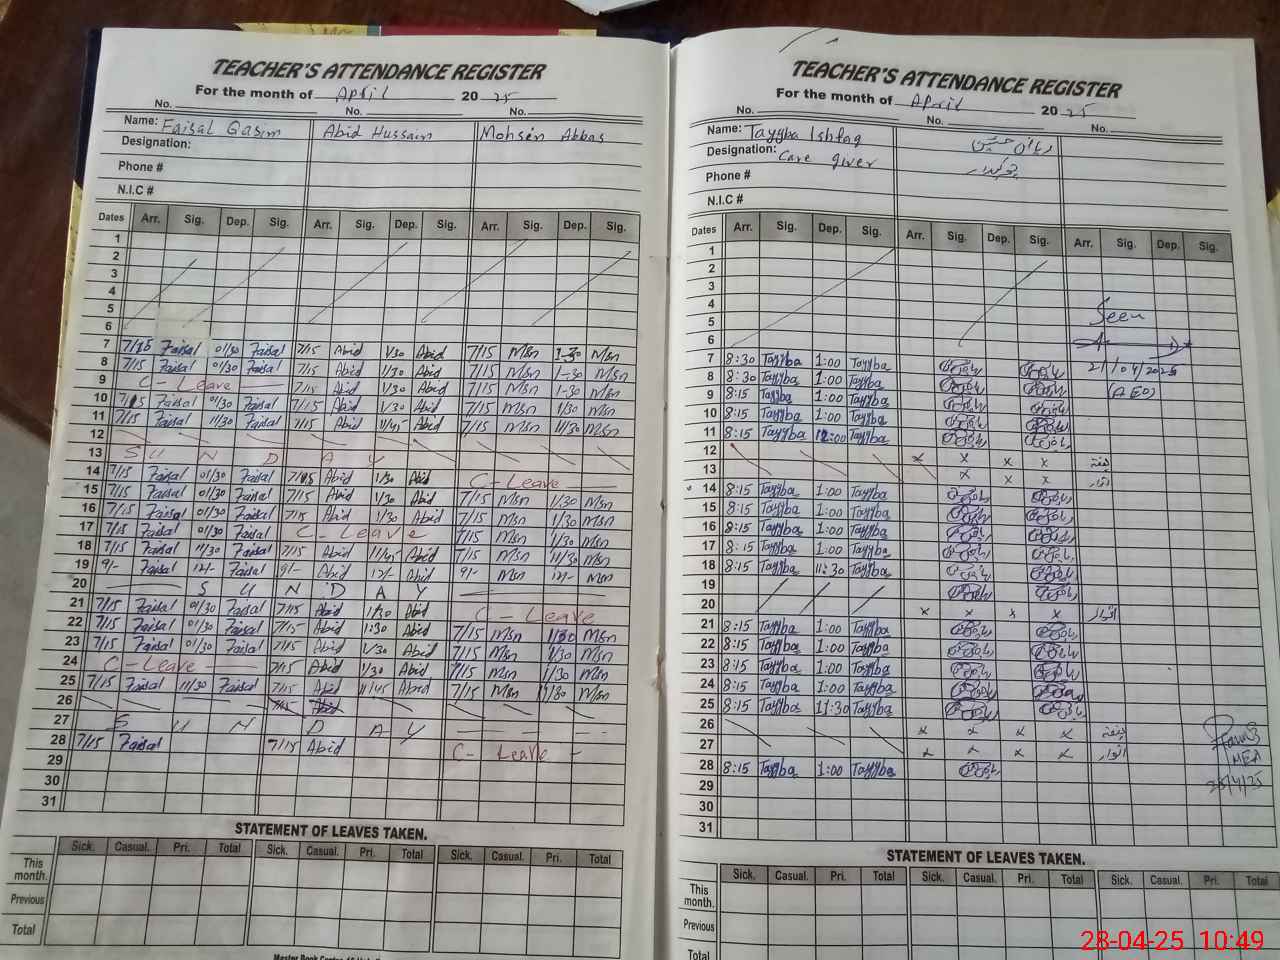 TEACHER'S ATTENDANCE REGISTER
For the month of April 20 25
No. No. No.
Name: Faisal Qasim Abid Hussain Mohsin Abbas
Designation:
Phone #
N.I.C #
Dates Arr. Sig. Dep. Sig. Arr. Sig. Dep. Sig. Arr. Sig. Dep. Sig.
1
2
3
4
5
6
7 7/15 Faisal 01/30 Faisal 7/15 Abid 1/30 Abid 7/15 Msn 1-30 Msn
8 7/15 Faisal 01/30 Faisal 7/15 Abid 1/30 Abid 7/15 Msn 1-30 Msn
9 C-Leave 7/15 Abid 1/30 Abid 7/15 Msn 1-30 Msn
10 7/15 Faisal 01/30 Faisal 7/15 Abid 1/30 Abid 7/15 Msn 1/30 Msn
11 7/15 Faisal 11/30 Faisal 7/15 Abid 11/45 Abid 7/15 Msn 11/30 Msn
12
13 S U N D A Y
14 7/15 Faisal 01/30 Faisal 7/15 Abid 1/30 Abid C-Leave
15 7/15 Faisal 01/30 Faisal 7/15 Abid 1/30 Abid 7/15 Msn 1/30 Msn
16 7/15 Faisal 01/30 Faisal 7/15 Abid 1/30 Abid 7/15 Msn 1/30 Msn
17 7/15 Faisal 01/30 Faisal C-Leave 7/15 Msn 1/30 Msn
18 7/15 Faisal 11/30 Faisal 7/15 Abid 11/45 Abid 7/15 Msn 11/30 Msn
19 9/- Faisal 12/- Faisal 9/- Abid 12/- Abid 9/- Msn 12/- Msn
20 S U N D A Y
21 7/15 Faisal 01/30 Faisal 7/15 Abid 1/30 Abid C-Leave
22 7/15 Faisal 01/30 Faisal 7/15 Abid 1:30 Abid 7/15 Msn 1/30 Msn
23 7/15 Faisal 01/30 Faisal 7/15 Abid 1/30 Abid 7/15 Msn 1/30 Msn
24 C-Leave 7/15 Abid 1/30 Abid 7/15 Msn 1/30 Msn
25 7/15 Faisal 11/30 Faisal 7/15 Abid 11/45 Abid 7/15 Msn 11/30 Msn
26 7/15 Abid
27 S U N D A Y
28 7/15 Faisal 7/15 Abid C-Leave
29
30
31
STATEMENT OF LEAVES TAKEN.
Sick. Casual. Pri. Total Sick. Casual. Pri. Total Sick. Casual. Pri. Total
This month.
Previous
Total
TEACHER'S ATTENDANCE REGISTER
For the month of April 20 25
No. No. No.
Name: Tayyba Ishfaq
Designation: Care giver
Phone #
N.I.C #
Dates Arr. Sig. Dep. Sig. Arr. Sig. Dep. Sig. Arr. Sig. Dep. Sig.
1
2
3
4 Seen
5
6
7 8:30 Tayyba 1:00 Tayyba 21/04/2025
8 8:30 Tayyba 1:00 Tayyba (AEO)
9 8:15 Tayyba 1:00 Tayyba
10 8:15 Tayyba 1:00 Tayyba
11 8:15 Tayyba 12:00 Tayyba
12 x x x x ہفتہ
13 x x x اتوار
14 8:15 Tayyba 1:00 Tayyba
15 8:15 Tayyba 1:00 Tayyba
16 8:15 Tayyba 1:00 Tayyba
17 8:15 Tayyba 1:00 Tayyba
18 8:15 Tayyba 11:30 Tayyba
19
20 x x x x اتوار
21 8:15 Tayyba 1:00 Tayyba
22 8:15 Tayyba 1:00 Tayyba
23 8:15 Tayyba 1:00 Tayyba
24 8:15 Tayyba 1:00 Tayyba
25 8:15 Tayyba 11:30 Tayyba
26 x x x x ہفتہ
27 x x x x اتوار MEA
28 8:15 Tayyba 1:00 Tayyba 25/4/25
29
30
31
STATEMENT OF LEAVES TAKEN.
Sick. Casual. Pri. Total Sick. Casual. Pri. Total Sick. Casual. Pri. Total
This month.
Previous
Total
28-04-25 10:49